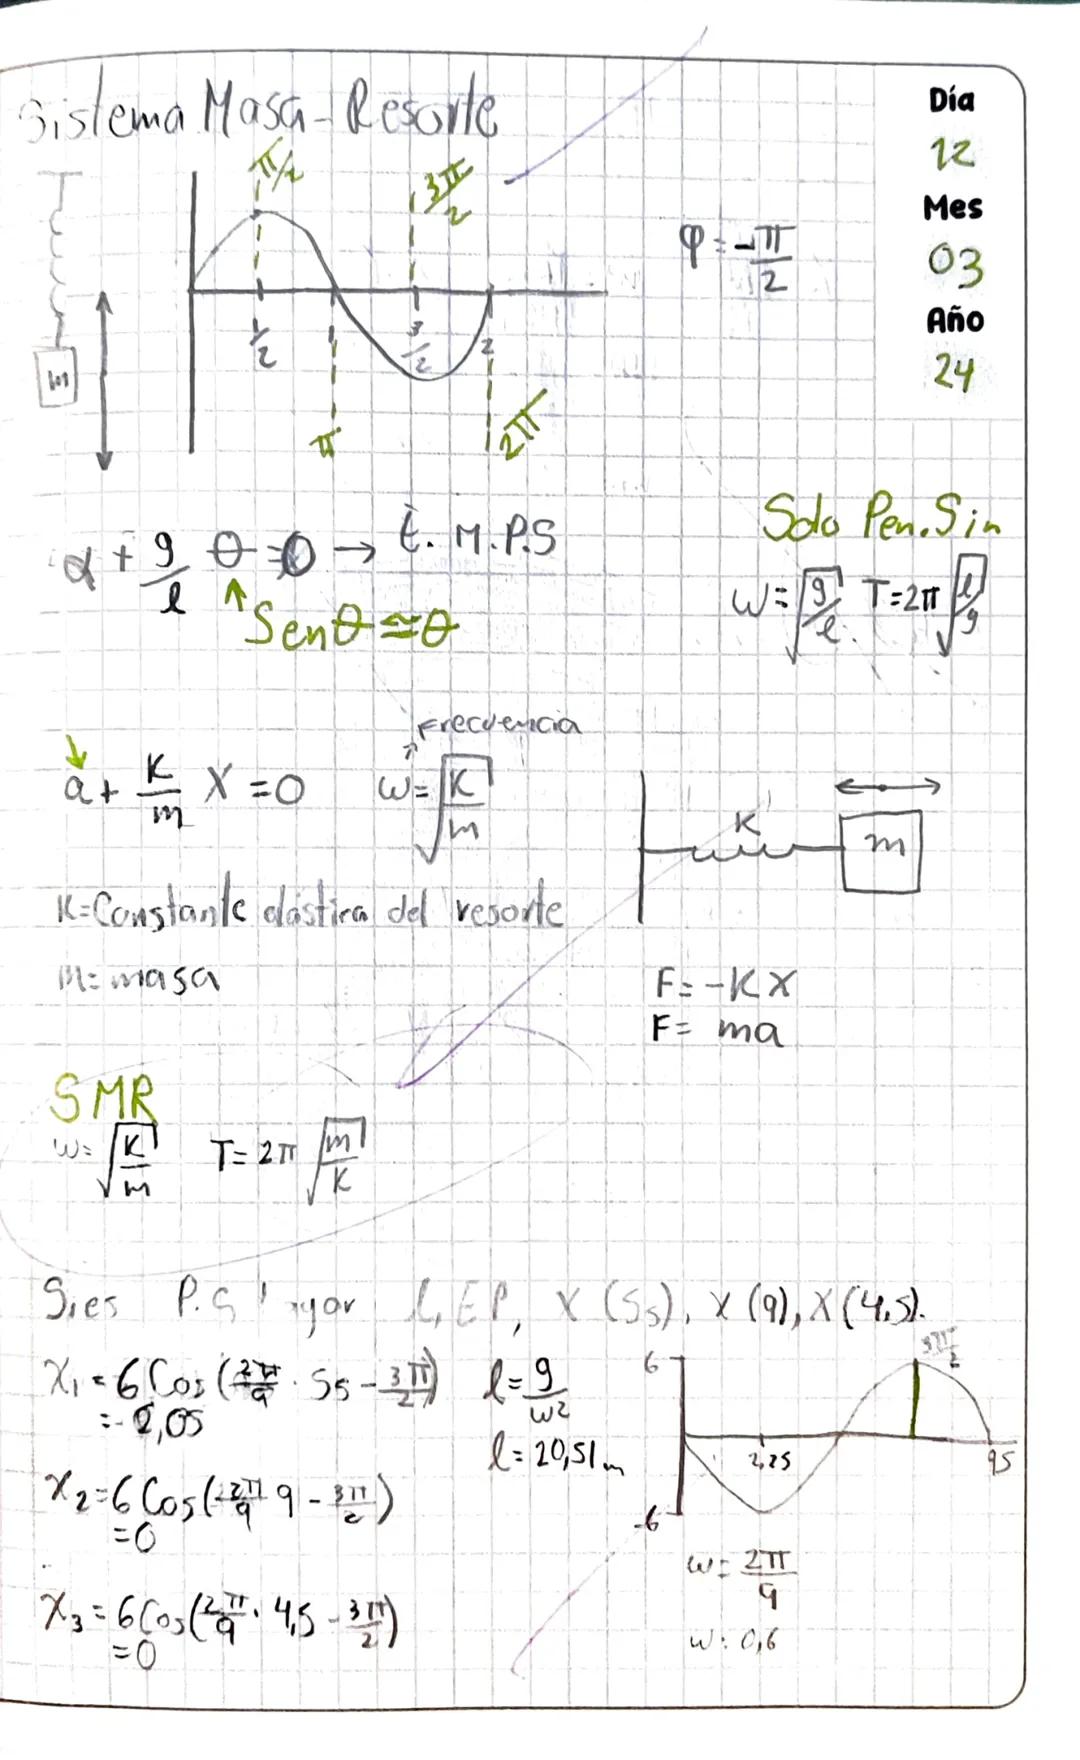 Sistema Masa-Resorte
Día
12
Mes
03
Año
24
π/2
3π/2
φ = -π/2
1/2
3/2
2
π
2π
m
α + g/l θ = 0 → E. M.P.S
Senθ ≅ θ
Solo Pen. Sim
ω = √(g/l) T = 2π √(l/g)
Frecuencia
a + K/m X = 0 ω = √(K/m)
K
m
K = Constante elástica del resorte
M = masa
F = -KX
F = ma
SMR
ω = √(K/m) T = 2π √(m/K)
Si es P.S l, EP, X (5s), X (9), X (4,5).
X₁ = 6 Cos (2π/9 · 5s - 3π/2)
= -2,05
l = g/ω2
l = 20,51 m
X₂ = 6 Cos (2π/9 9 - 3π/2)
= 0
X₃ = 6 Cos (2π/9 · 4,5 - 3π/2)
= 0
6
3π/2
2,25
9s
-6
ω = 2π/9
ω: 0,6